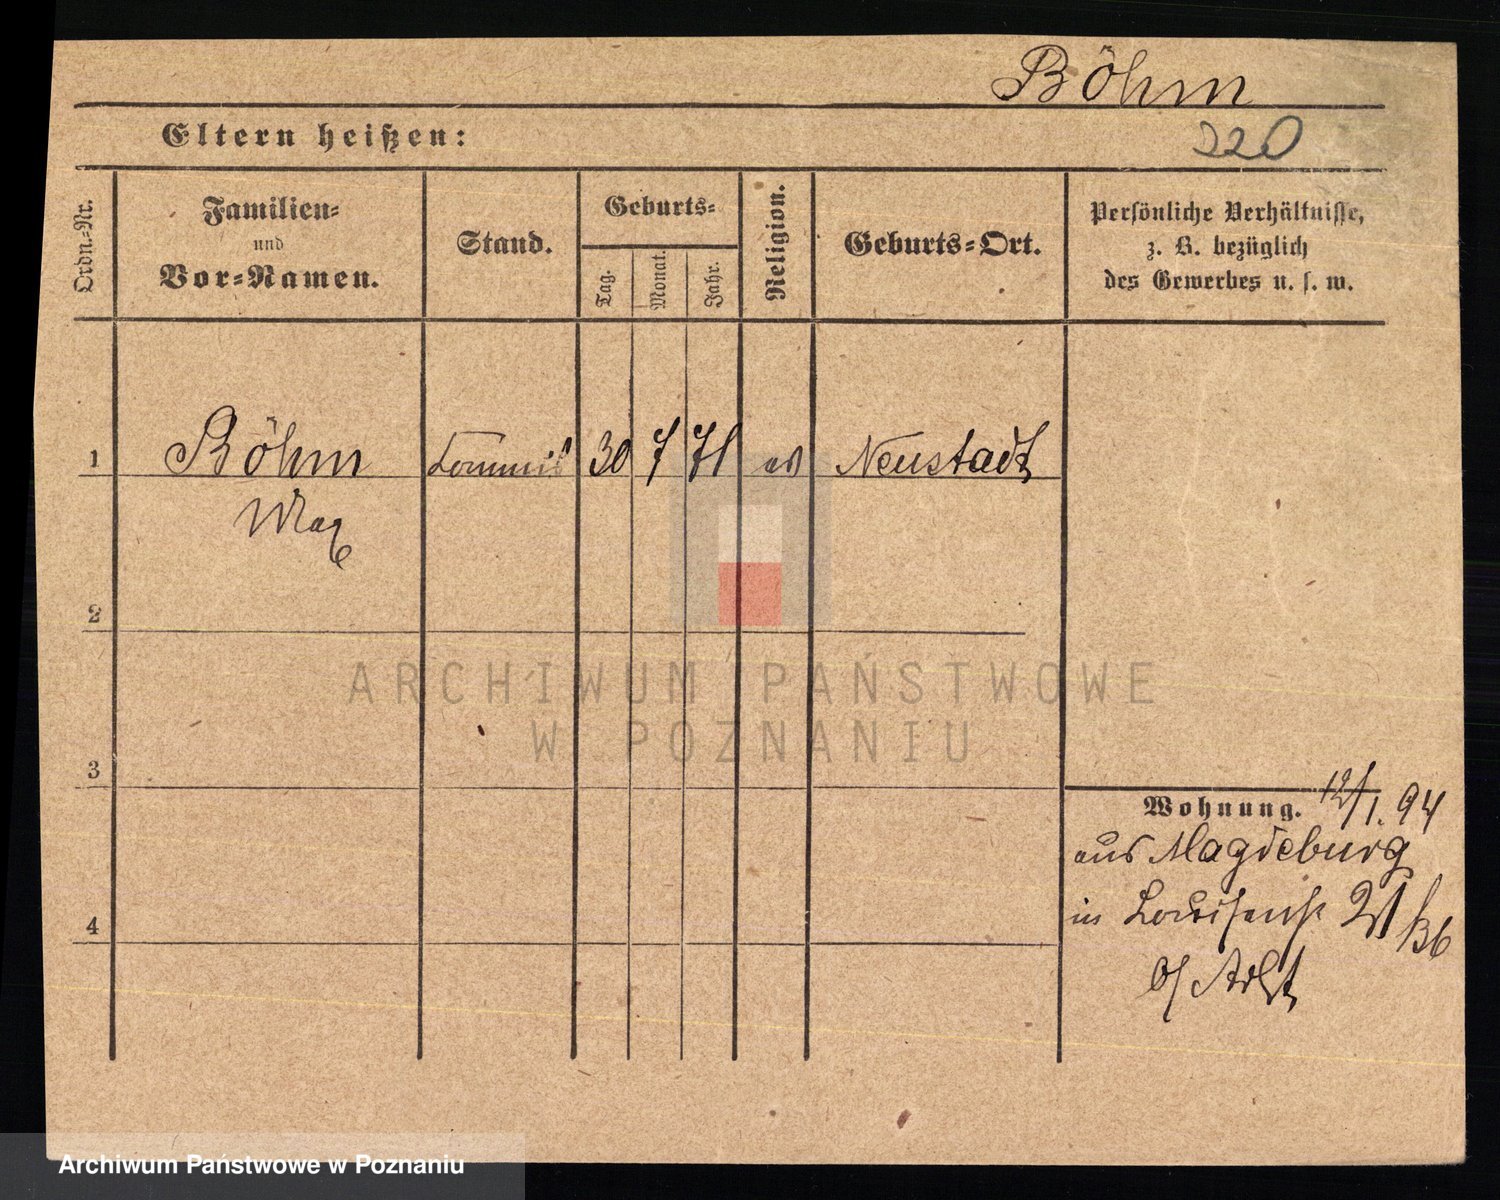 Böhm
Eltern heißen:
220
Ordn.-Nr.
Familien-
und
Vor-Namen.
Stand.
Geburts-
Tag.
Monat.
Jahr.
Religion.
Geburts-Ort.
Persönliche Verhältnisse,
z. B. bezüglich
des Gewerbes u. s. w.
1 Böhm Commis 30 7 71 ev Neustadt
Max
2
ARCHIWUM PAŃSTWOWE
W POZNANIU
3
Wohnung. 12/1. 94
aus Magdeburg
in Louisenstr 21
4
Archiwum Państwowe w Poznaniu